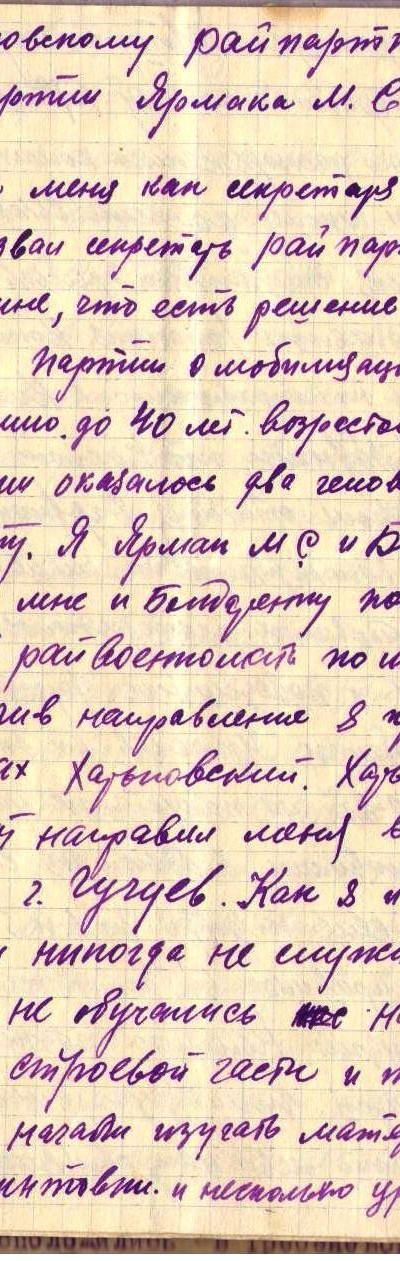 овскому райпартк
ртии Ярмака М. С
меня как секретаря
звал секретарь райпар
мне, что есть решение
Партии о мобилизац
до 40 лет. возрасто
ии оказалось два челов
Я Ярмак М С и Б
мне и Бондаренку по
райвоенкомать по м
чив направления я
ах Харьковский. Харь
й направил меня в
г. Чугуев. Как я и
и никогда не служи
не обучались на
строевой части и
начали изучать мате
интовки. и несколько ур